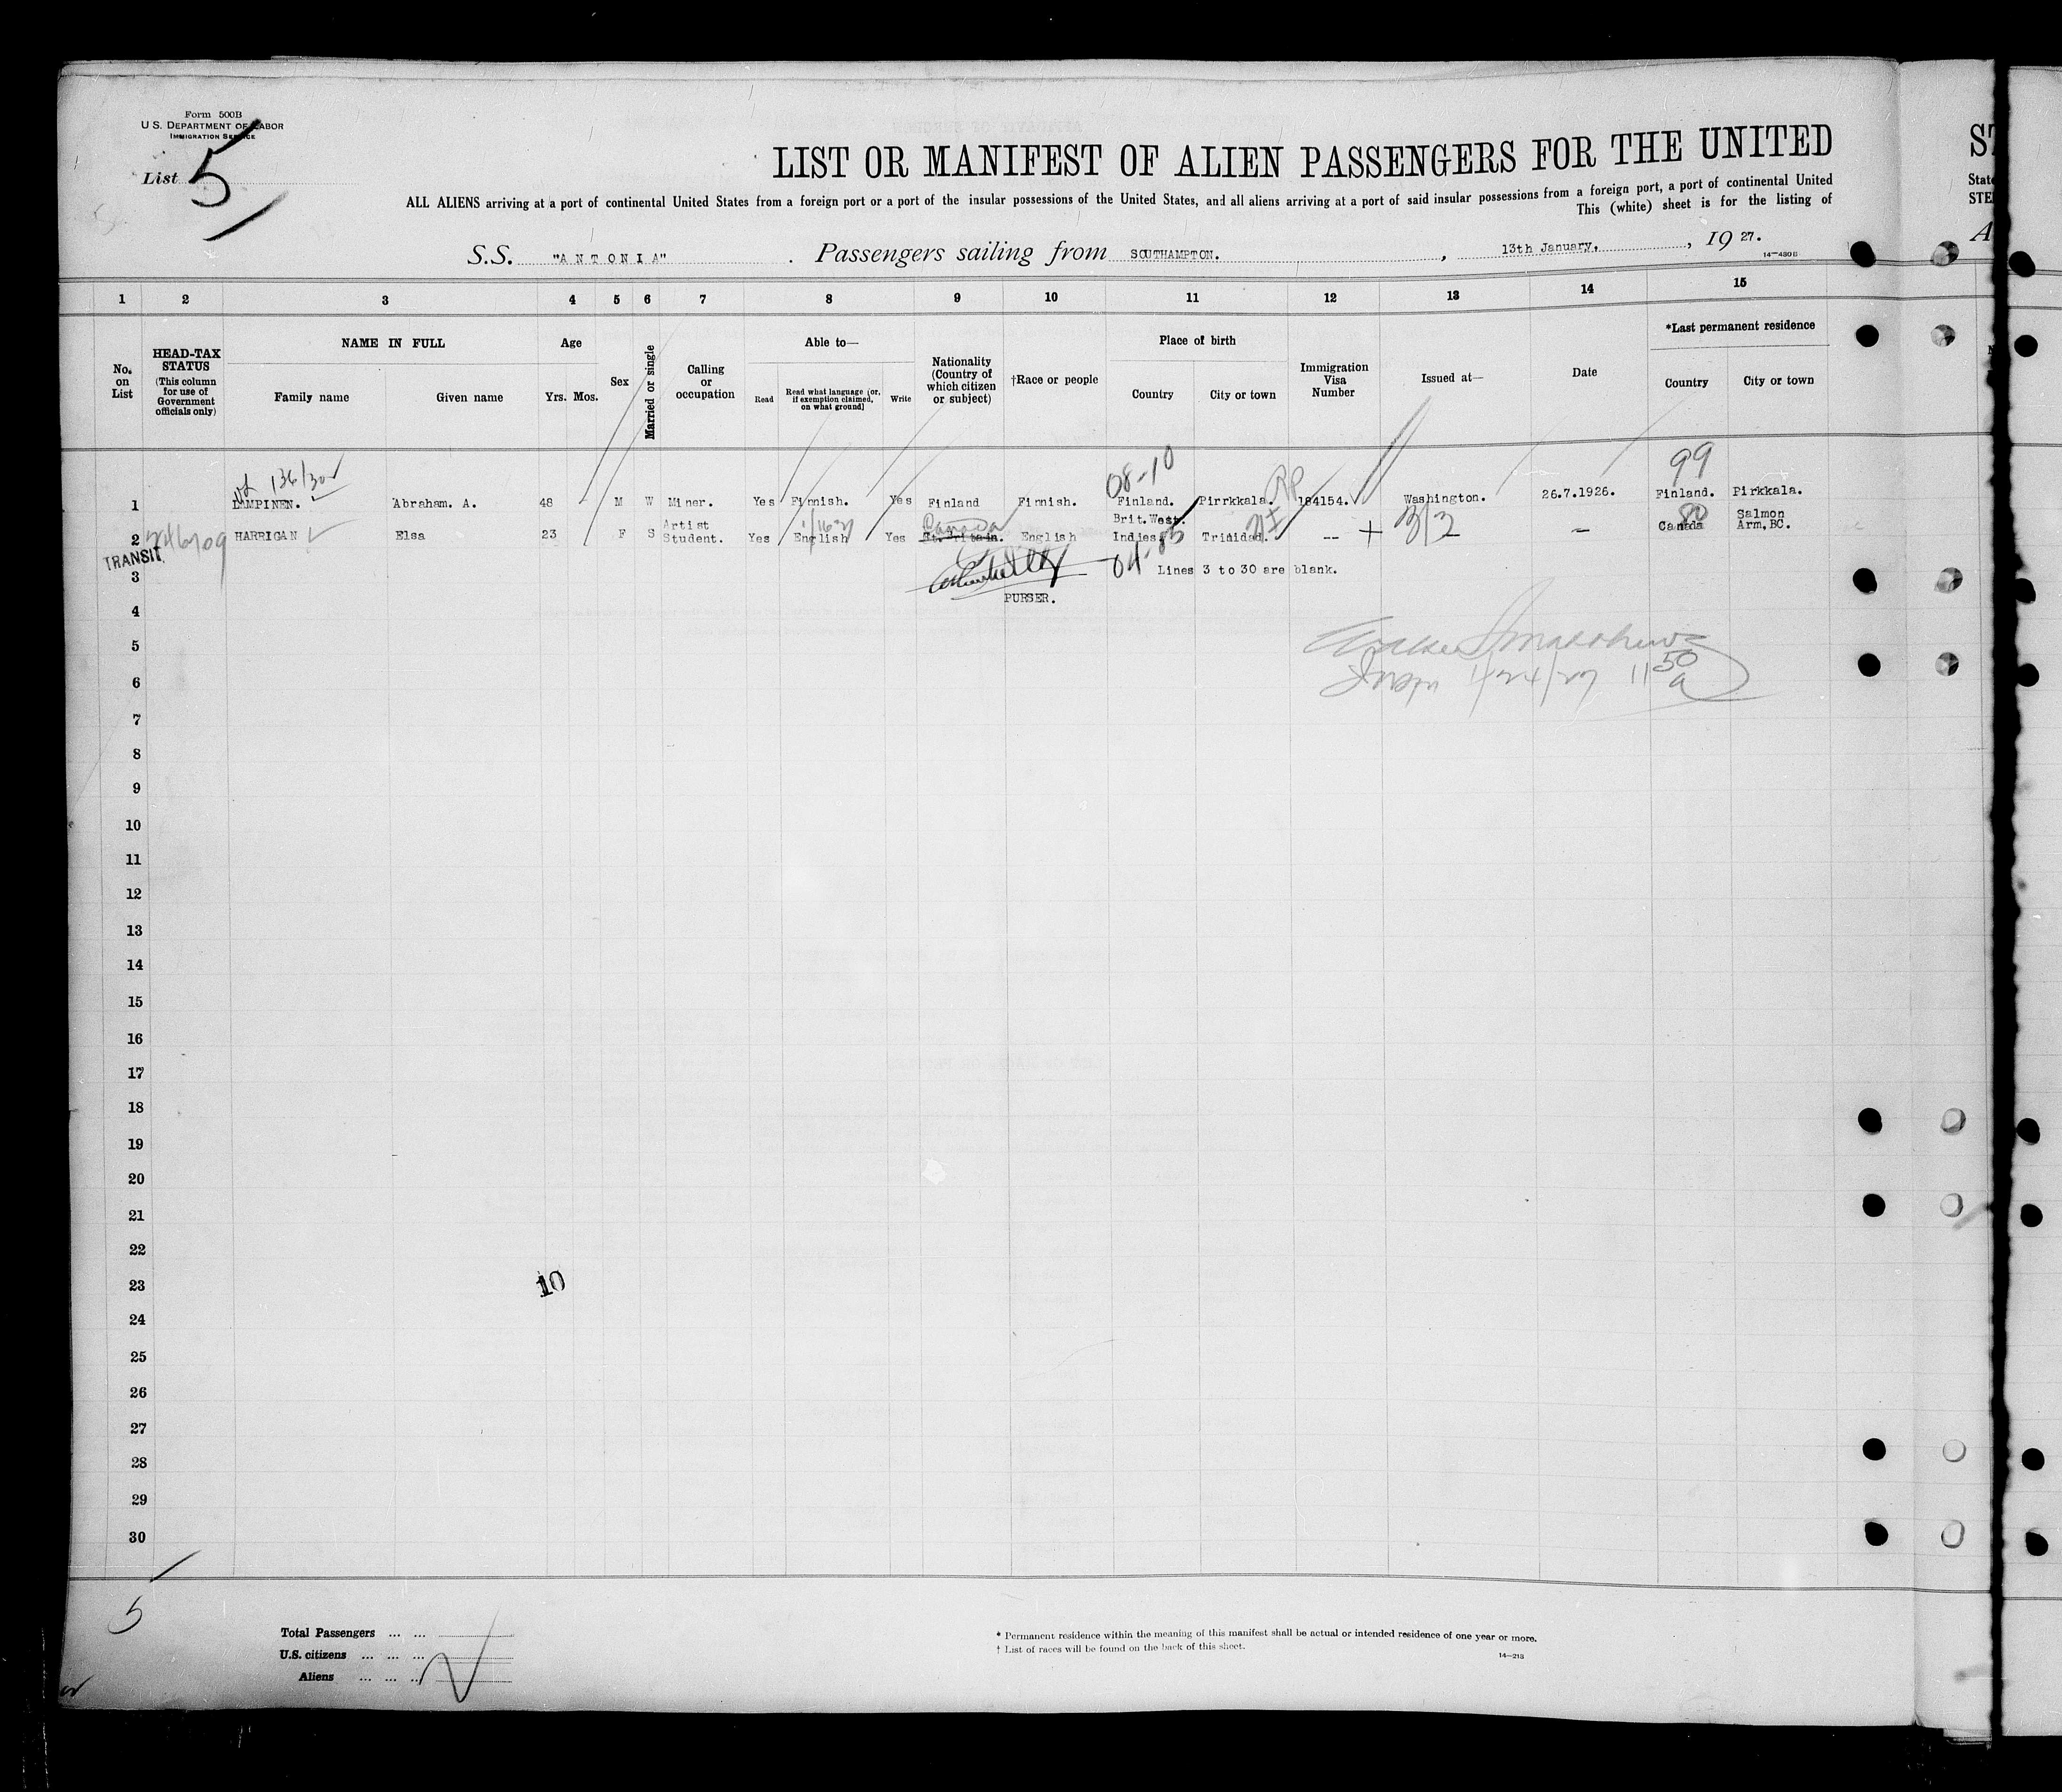 Form 500B
U.S. DEPARTMENT OF LABOR
IMMIGRATION SERVICE
List 5
LIST OR MANIFEST OF ALIEN PASSENGERS FOR THE UNITED
ALL ALIENS arriving at a port of continental United States from a foreign port or a port of the insular possessions of the United States, and all aliens arriving at a port of said insular possessions from a foreign port, a port of continental United
This (white) sheet is for the listing of
S.S. "ANTONIA" . Passengers sailing from SOUTHAMPTON. , 13th January, , 19 27.
14—430B
1 2 3 4 5 6 7 8 9 10 11 12 13 14 15
No. on List
HEAD-TAX STATUS (This column for use of Government officials only)
NAME IN FULL
Family name Given name
Age
Yrs. Mos.
Sex
Married or single
Calling or occupation
Able to—
Read Read what language (or, if exemption claimed, on what ground) Write
Nationality (Country of which citizen or subject)
†Race or people
Place of birth
Country City or town
Immigration Visa Number
Issued at—
Date
*Last permanent residence
Country City or town
136/302 08-10 RP 99
1 LAMPINEN. Abraham. A. 48 M W Miner. Yes Finnish. Yes Finland Finnish. Finland. Pirrkkala. 184154. Washington. 26.7.1926. Finland. Pirkkala.
2 HARRIGAN Elsa 23 F S Artist Student. Yes English Yes Canada Gt. Britain. English Brit. West. Indies. Trinidad. -- + 3/2 – Canada 80 Salmon Arm, BC.
TRANSIT
04-85
3 Lines 3 to 30 are blank.
PURSER.
4
5
6
11 50 a
7
8
9
10
11
12
13
14
15
16
17
18
19
20
21
22
23
10
24
25
26
27
28
29
30
5
Total Passengers ... ...
U.S. citizens ... ... ...
Aliens ... ... ...
* Permanent residence within the meaning of this manifest shall be actual or intended residence of one year or more.
† List of races will be found on the back of this sheet.
14—213